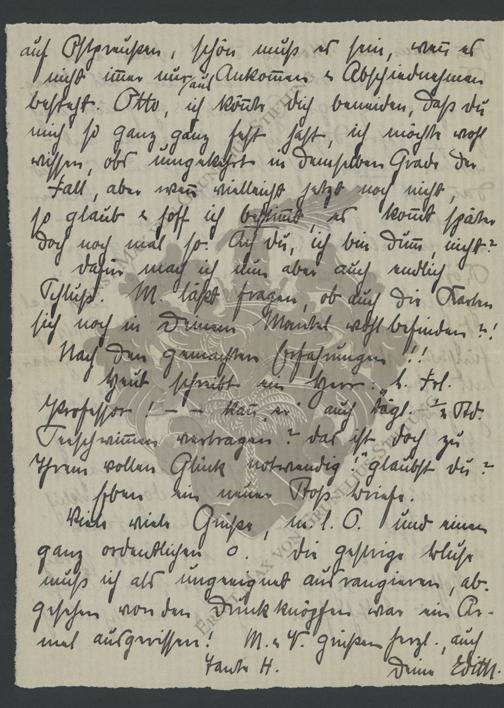 auf Ostpreußen, schön muß es sein, wenn es
nicht immer nur aus Ankommen & Abschiednehmen
besteht. Otto, ich könnte dich beneiden, daß du
mich so ganz ganz fest hast, ich möchte wohl
wissen, obs umgekehrt in demselben Grade der
Fall, aber wenn vielleicht jetzt noch nicht,
so glaub & hoff ich bestimmt es kommt später
doch noch mal so. Ach du, ich bin dumm, nicht?
dafür mach ich nun aber auch endlich
Schluß. M. läßt fragen, ob auch die Karten
sich noch in Deinem Mantel wohl befinden?!
Nach den gemachten Erfahrungen!!
Heut schreibt ein Herr: „S. Frl.
Professor! – – kann er auch tägl. ½ Std.
vertragen? das ist doch zu
Ihrem vollen Glück notwendig!" glaubst du?
Eben ein neuer Stoß Briefe.
Viele viele Grüße, m. l. O. und einen
ganz ordentlichen o. die gestrige Bluse
muß ich als ungeeignet ausrangieren, ab-
gesehen von den Druckknöpfen war ein Är-
mel ausgerissen! M. & V. grüßen herzl., auch
Tante H. Deine Edith.